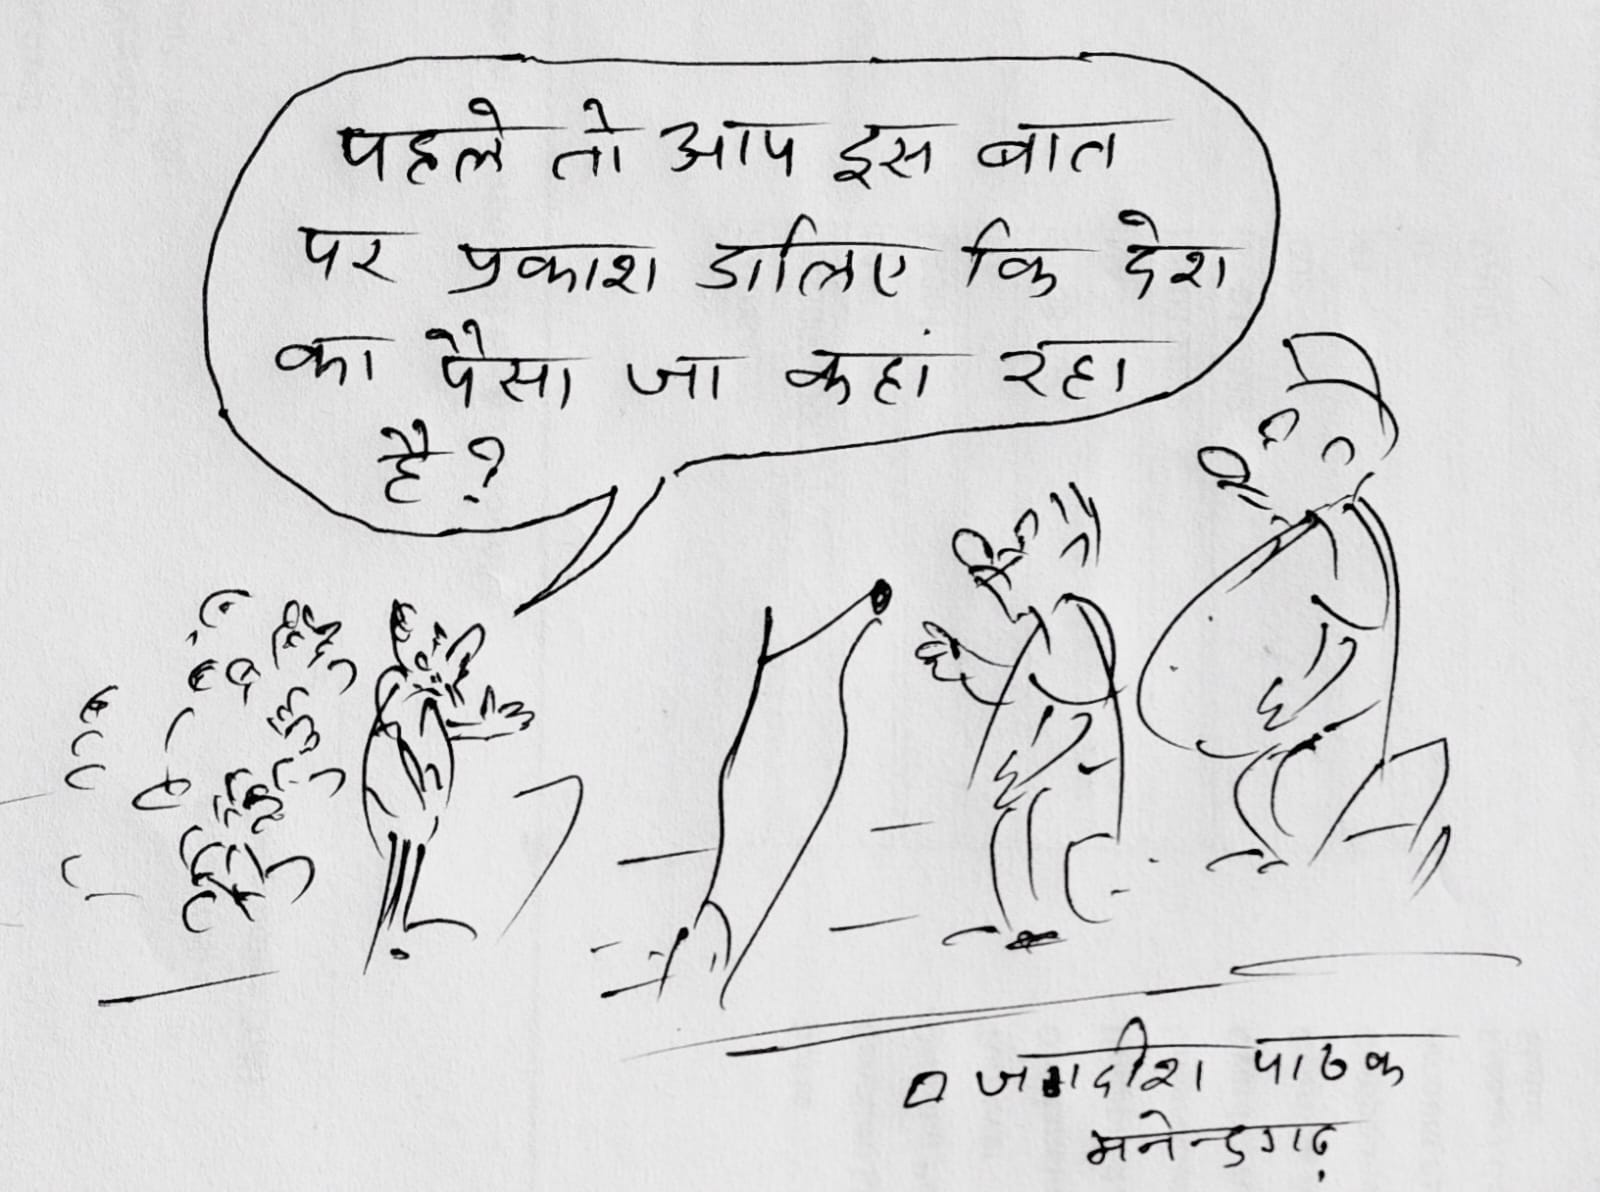 पहले तो आप इस बात
पर प्रकाश डालिए कि देश
का पैसा जा कहां रहा
है?
जगदीश पाठक
मनेन्द्रगढ़